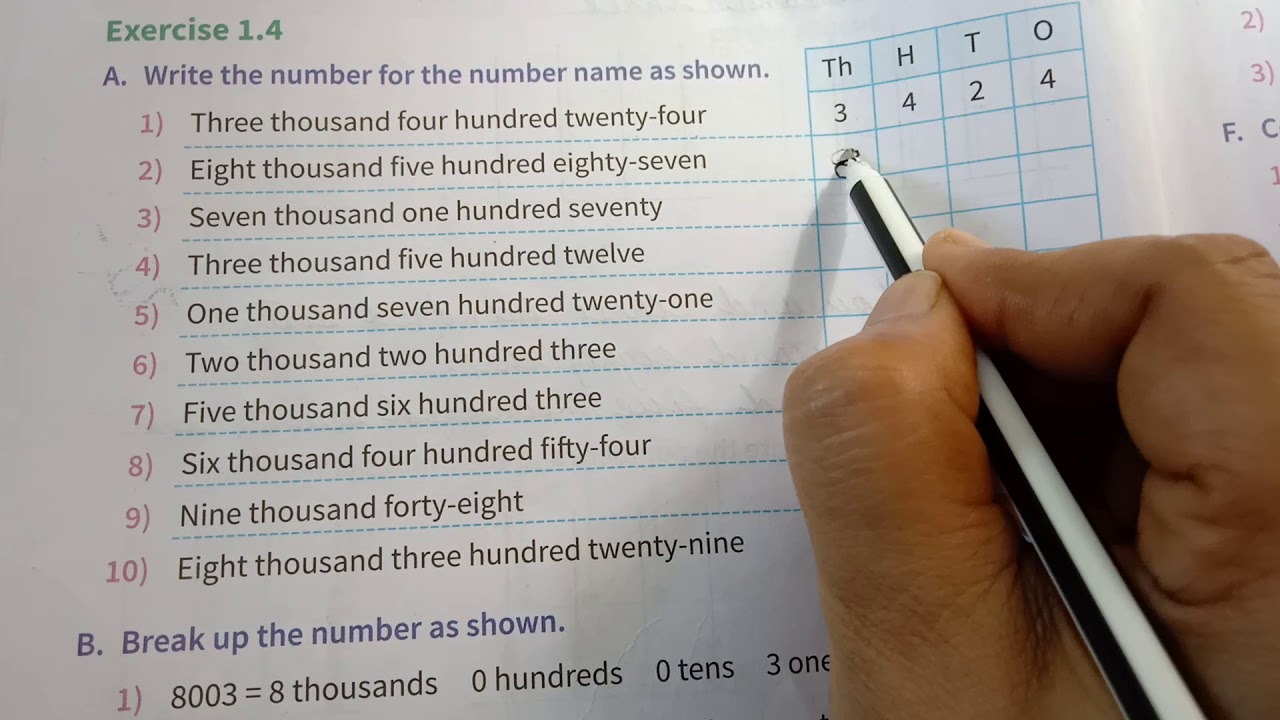 Exercise 1.4
A. Write the number for the number name as shown.
Th H T O
1) Three thousand four hundred twenty-four 3 4 2 4
2) Eight thousand five hundred eighty-seven
3) Seven thousand one hundred seventy
4) Three thousand five hundred twelve
5) One thousand seven hundred twenty-one
6) Two thousand two hundred three
7) Five thousand six hundred three
8) Six thousand four hundred fifty-four
9) Nine thousand forty-eight
10) Eight thousand three hundred twenty-nine
B. Break up the number as shown.
1) 8003 = 8 thousands 0 hundreds 0 tens 3
2)
3)
F. C